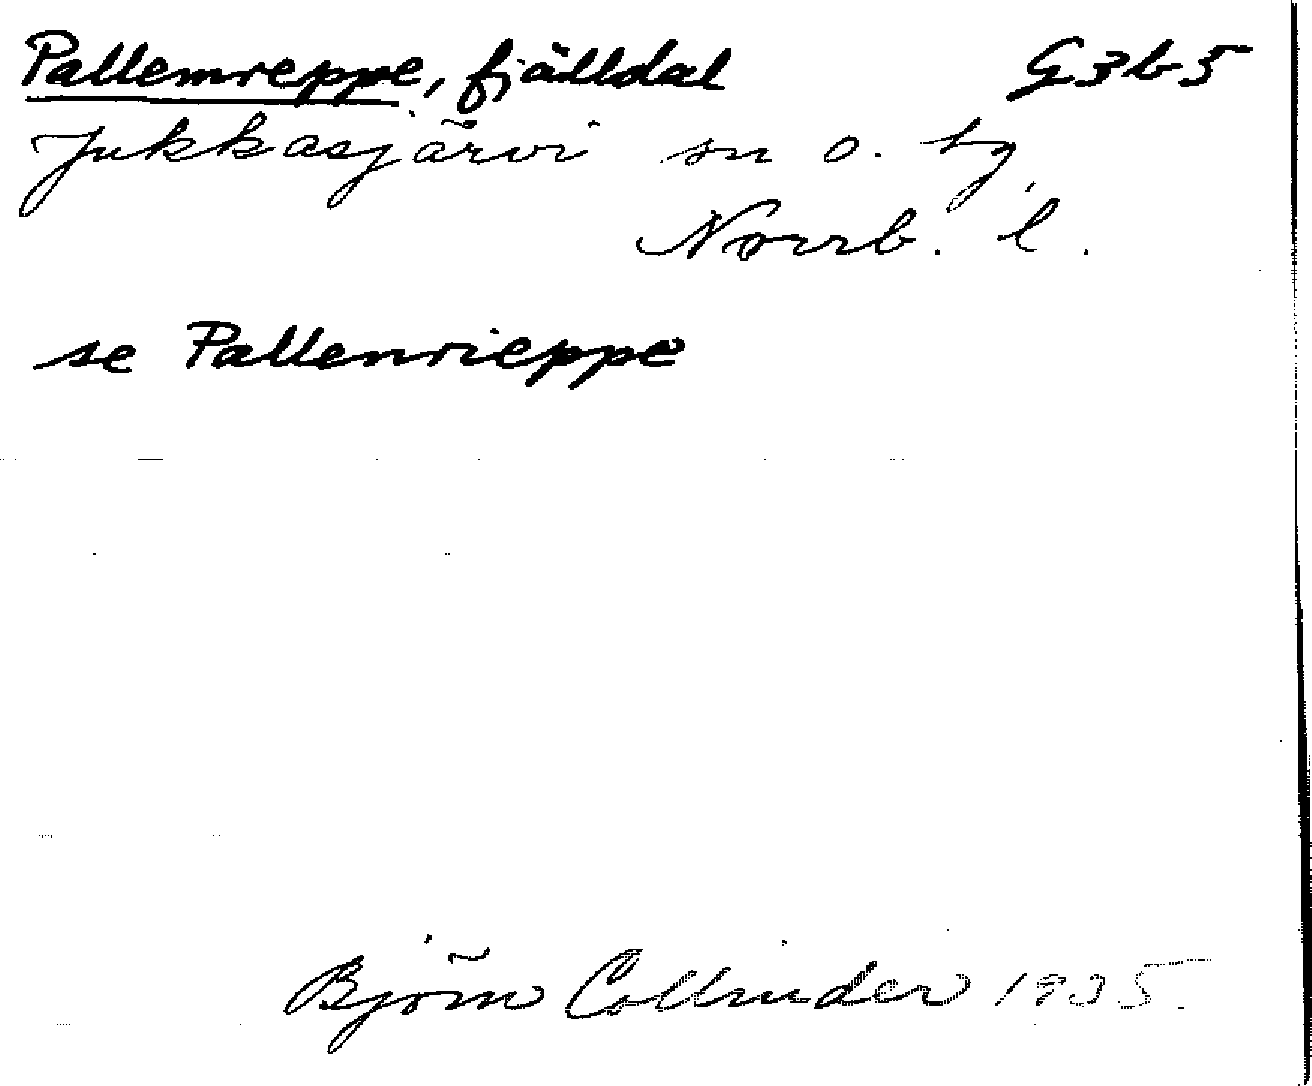 Pallemreppe, fjälldal G3b5
Jukkasjärvi sn o. tg,
Norrb. l.
se Pallenrieppe
Björn Collinder 1935.